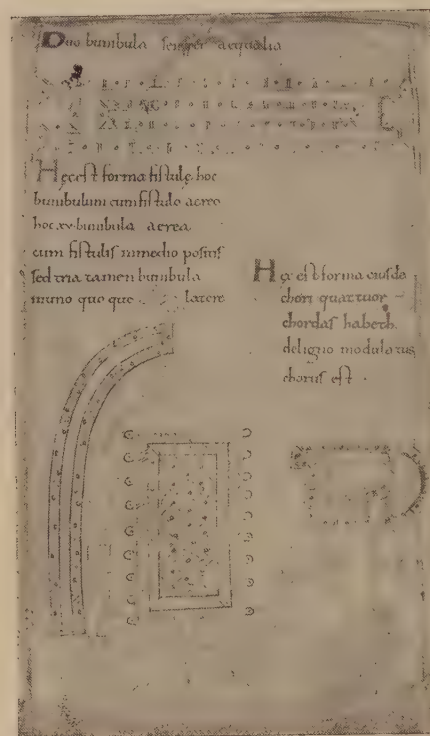 Duo bumbula semper aequalia
Hęc est forma fistulę hoc
bumbulum cum fistula aerea
hoc xv bumbula aerea
cum fistulis in medio positis
sed tria tamen bumbula
in uno quo que latere
Hęc est forma eiusdē
chori quattuor
chordas habeth
de ligno modulatus
chorus est.